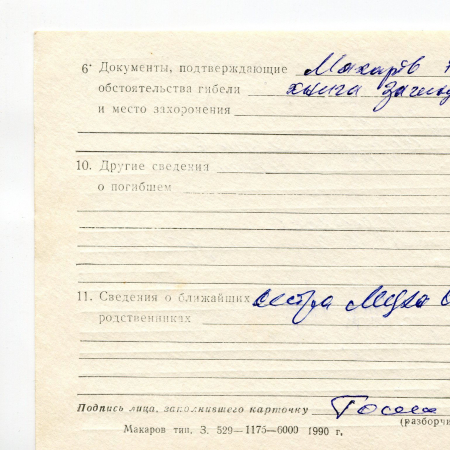 6· Документы, подтверждающие
обстоятельства гибели книга
и место захоронения
10. Другие сведения
о погибшем
11. Сведения о ближайших сестра
родственниках
Подпись лица, заполнившего карточку
(разборч
Макаров тип. З. 529—1175—6000 1990 г.